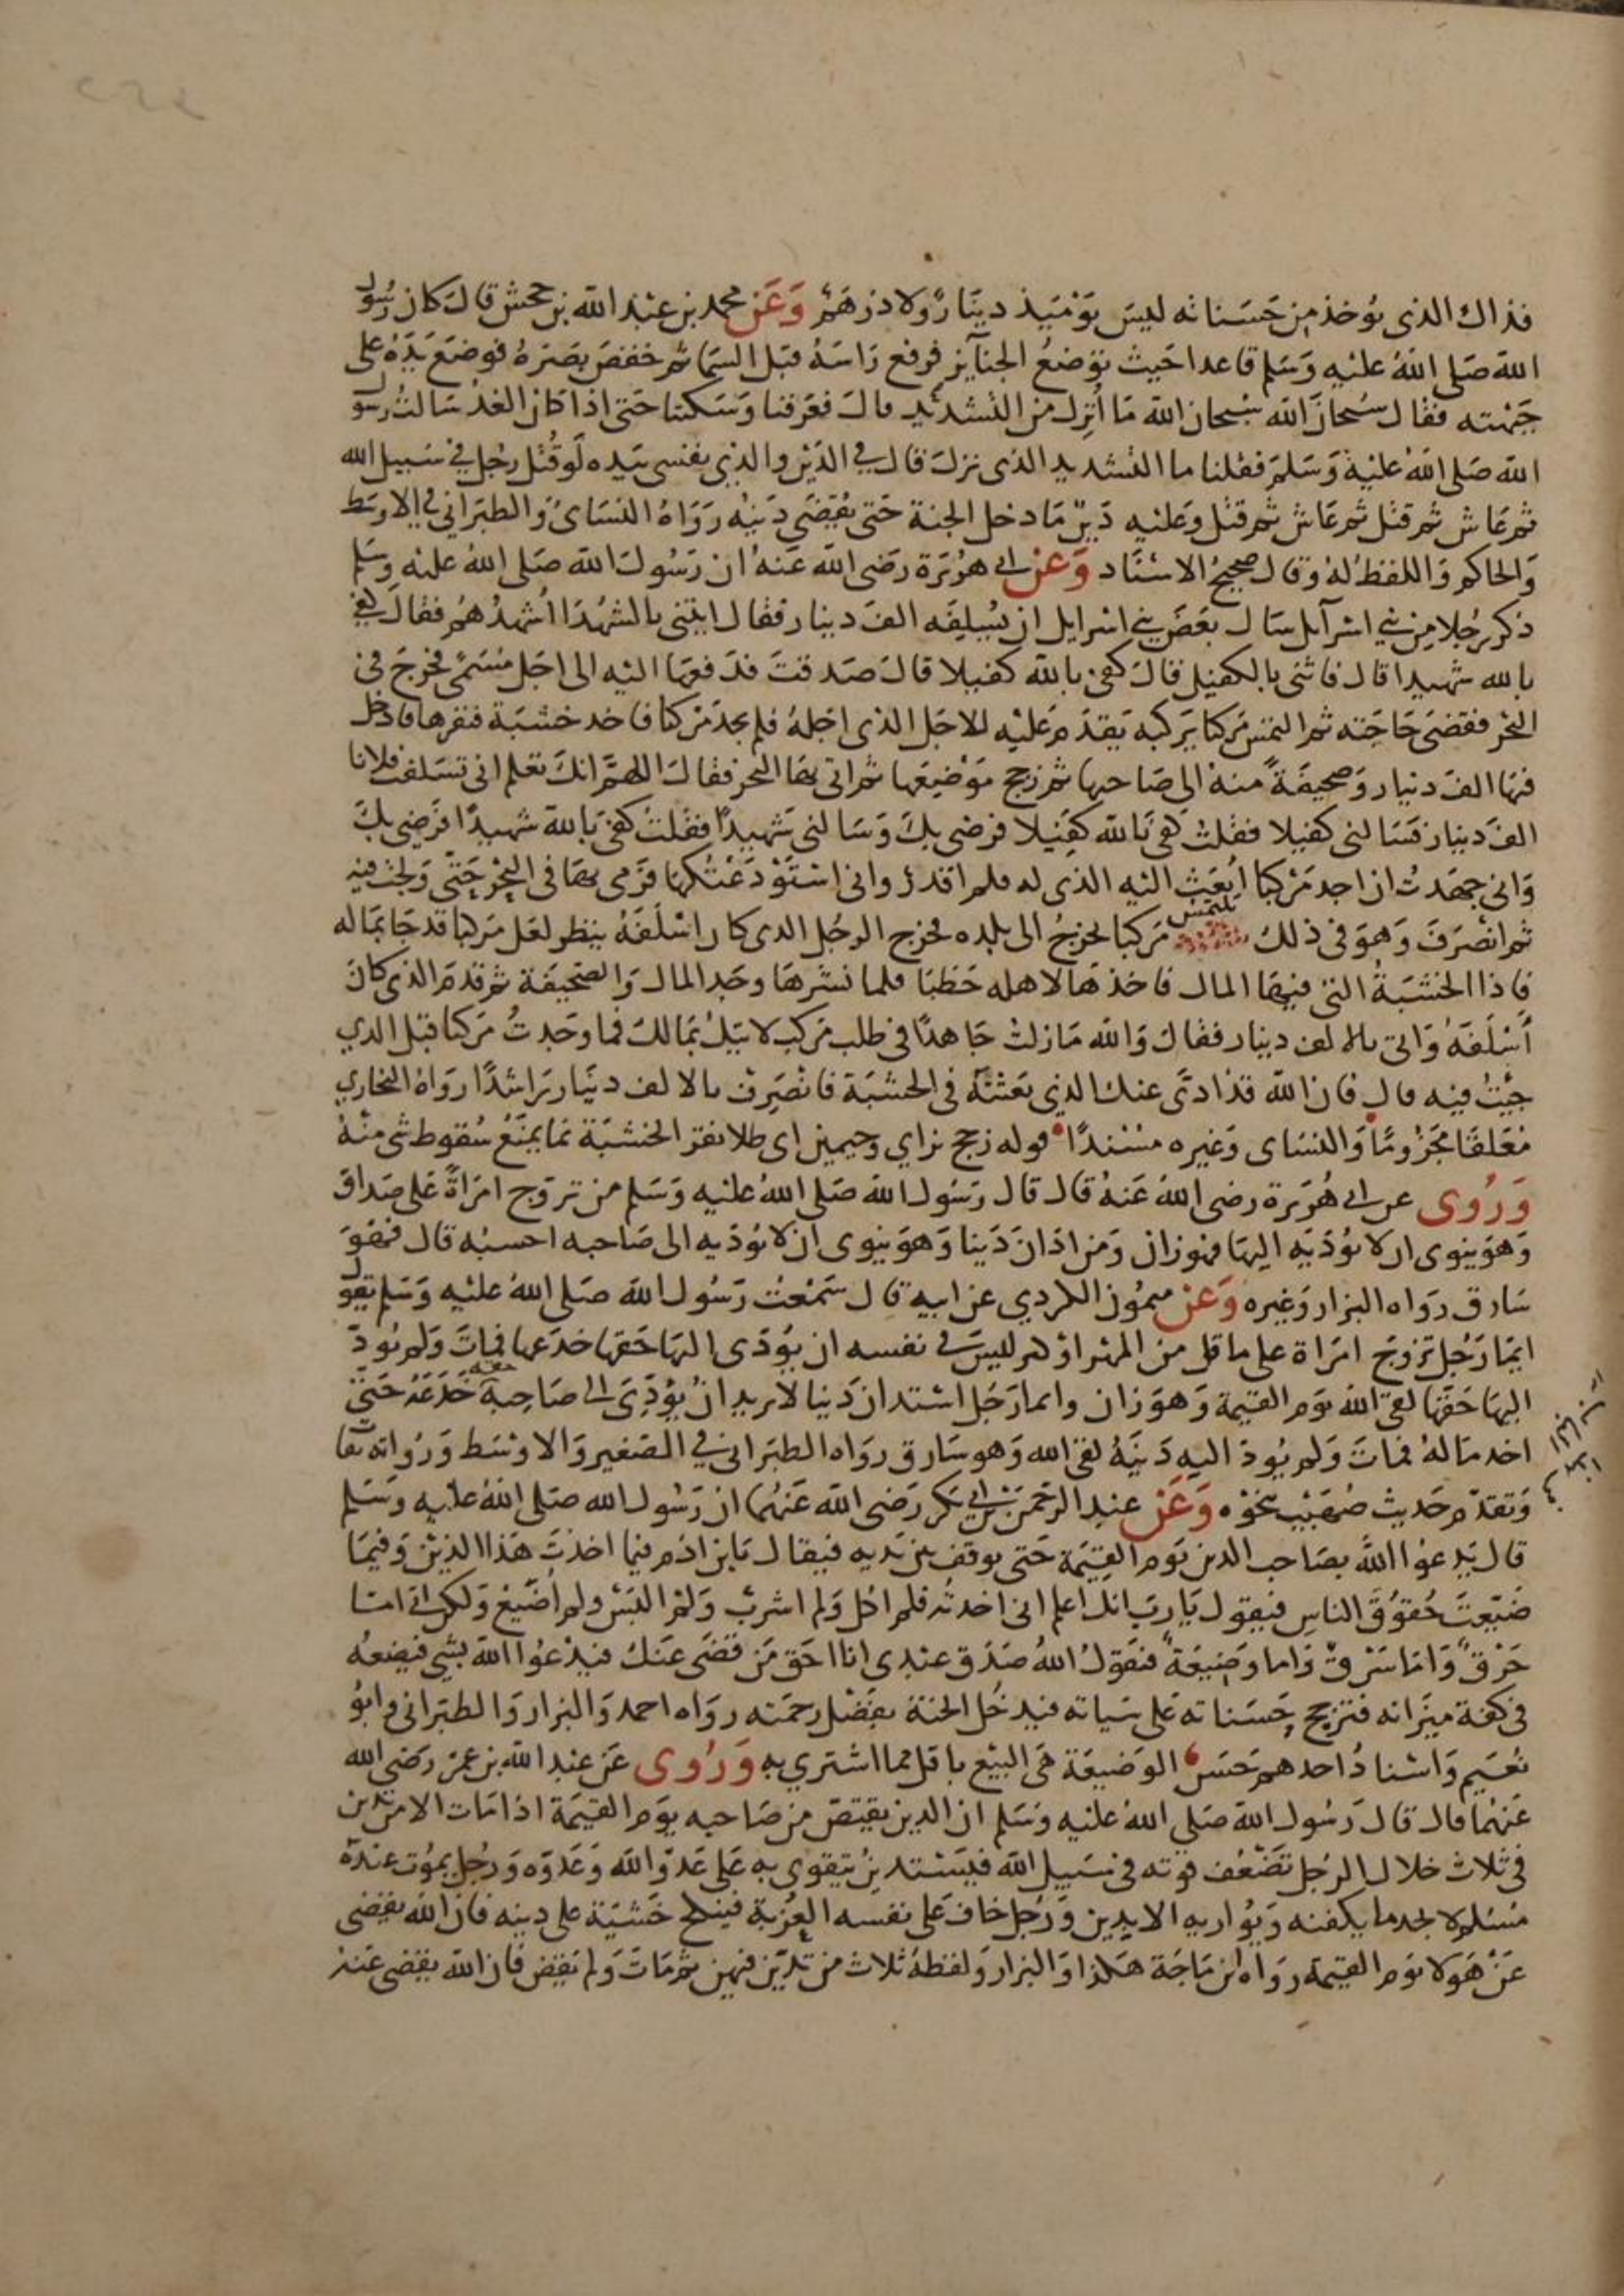 فذاك الذى يوخذ من حسناته ليس يومئذ دينار ولا درهم وعن محمد بن عبد الله بن جحش قال كان رسول
الله صلى الله عليه وسلم قاعدا حيث توضع الجنايز فرفع راسه قبل السما ثم خفض بصره فوضع يده على
جبهته فقال سبحان الله سبحان الله ما أنزل من التشديد قال فعرفنا وسكتنا حتى اذا كان الغد سالت رسول
الله صلى الله عليه وسلم فقلنا ما التشديد الذى نزل قال في الدين والذي نفسى بيده لو قتل رجل في سبيل الله
ثم عاش ثم قتل ثم عاش ثم قتل وعليه دين ما دخل الجنة حتى يقضى دينه رواه النساى والطبراني في الاوسط
والحاكم واللفظ له وقال صحيح الاسناد وعن ابي هريرة رضى الله عنه ان رسول الله صلى الله عليه وسلم
ذكر رجلا من بني اسرآيل سال بعض بني اسرايل ان يسلفه الف دينار فقال ايتني بالشهدا أشهدهم فقال كفى
بالله شهيدا قال فاتنى بالكفيل قال كفى بالله كفيلا قال صدقت فدفعها اليه الى اجل مسمى فخرج فى
البحر فقضى حاجته ثم التمس مركبا يركبه يقدم عليه للاجل الذى اجله فلم يجد مركبا فاخذ خشبة فنقرها فادخل
فيها الف دينار وصحيفة منه الى صاحبها ثم زجج موضعها ثم اتى بها البحر فقال اللهم انك تعلم انى تسلفت فلانا
الف دينار فسالنى كفيلا فقلت كفى بالله كفيلا فرضى بك وسالنى شهيدا فقلت كفى بالله شهيدا فرضى بك
وانى جهدت ان اجد مركبا أبعث اليه الذى له فلم اقدر وانى استودعتكها فرمى بها فى البحر حتى ولجت فيه
ثم انصرف وهو فى ذلك يلتمس مركبا يخرج الى بلده فخرج الرجل الذى كان اسلفه ينظر لعل مركبا قد جا بماله
فاذا الخشبة التى فيها المال فاخذها لاهله حطبا فلما نشرها وجد المال والصحيفة ثم قدم الذى كان
أسلفه واتى بالالف دينار فقال والله ما زلت جاهدا فى طلب مركب لاتيك بمالك فما وجدت مركبا قبل الذي
جيت فيه قال فان الله قد ادى عنك الذي بعثته فى الخشبة فانصرف بالالف دينار راشدا رواه البخاري
معلقا مجزوما والنساى وغيره مسندا قوله زجج بزاي وجيمين اى طلا نقر الخشبة بما يمنع سقوط شى منه
وروى عن ابي هريرة رضى الله عنه قال قال رسول الله صلى الله عليه وسلم من تزوج امراة على صداق
وهو ينوى ان لا يؤديه اليها فهو زان ومن ادان دينا وهو ينوى ان لا يوديه الى صاحبه احسبه قال فهو
سارق رواه البزار وغيره وعن ميمون الكردي عن ابيه قال سمعت رسول الله صلى الله عليه وسلم يقول
ايما رجل تزوج امراة على ما قل من المهر او كثر ليس في نفسه ان يؤدى اليها حقها خدعها فمات ولم يود
اليها حقها لقى الله يوم القيمة وهو زان وايما رجل استدان دينا لا يريد ان يؤدى الى صاحبه حقه خدعه حتى
اخذ ماله فمات ولم يود اليه دينه لقى الله وهو سارق رواه الطبرانى في الصغير والاوسط ورواته ثقات
وتقدم حديث صهيب بنحوه وعن عبد الرحمن بن ابي بكر رضى الله عنهما ان رسول الله صلى الله عليه وسلم
قال يدعوا الله بصاحب الدين يوم القيمة حتى يوقف بين يديه فيقال يابن ادم فيما اخذت هذا الدين وفيما
ضيعت حقوق الناس فيقول يا رب انك اعلم انى اخذته فلم اكل ولم اشرب ولم البس ولم أضيع ولكن اتى اما
حرق واما سرق واما وضيعة فيقول الله صدق عبدى انا احق من قضى عنك فيدعوا الله بشى فيضعه
فى كفة ميزانه فترجح حسناته على سياته فيدخل الجنة بفضل رحمته رواه احمد والبزار والطبرانى وابو
نعيم واسناد احدهم حسن الوضيعة هى البيع باقل مما اشتري به وروى عن عبد الله بن عمر رضى الله
عنهما قال قال رسول الله صلى الله عليه وسلم ان الدين يقتص من صاحبه يوم القيمة اذا مات الا من تدين
فى ثلاث خلال الرجل تضعف قوته فى سبيل الله فيستدين يتقوى به على عدو الله وعدوه ورجل يموت عنده
مسلم لا يجد ما يكفنه ويواريه الا بدين ورجل خاف على نفسه العزبة فينكح خشية على دينه فان الله يقضى
عن هولا يوم القيمة رواه ابن ماجة هكذا والبزار ولفظه ثلاث من تدين فيهن ثم مات ولم يقض فان الله يقضى عنه